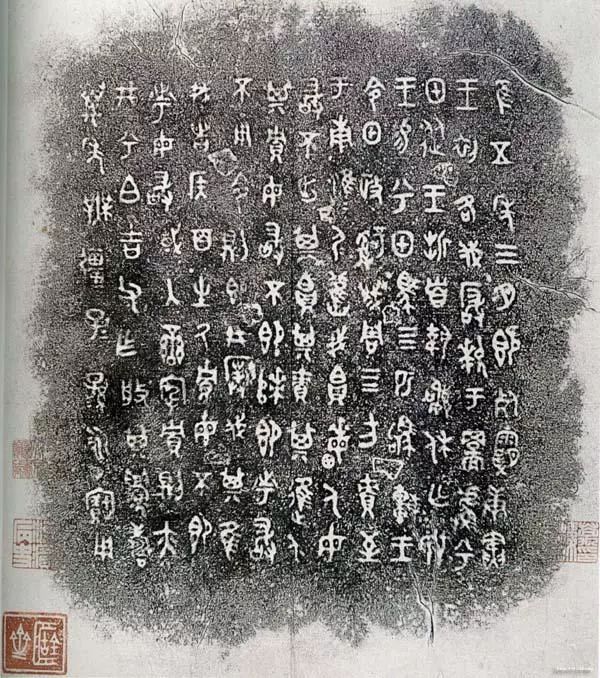 隹五年三月既死霸庚寅
王初各伐玁狁于𧇑兮
甲從王折首執訊休亡敃
王易兮甲馬四匹駒車王
令甲政𤔲成周四方責至
于南淮夷淮夷舊我帛畮人毋
敢不出其帛其責其進人
其賈毋敢不即次即市敢
不用令則即井撲伐其隹
我者侯百生厥賈毋不即
市毋敢或入蠻宄賈則亦
井兮白吉父乍般其眉壽
萬年無疆子子孫孫永寶用